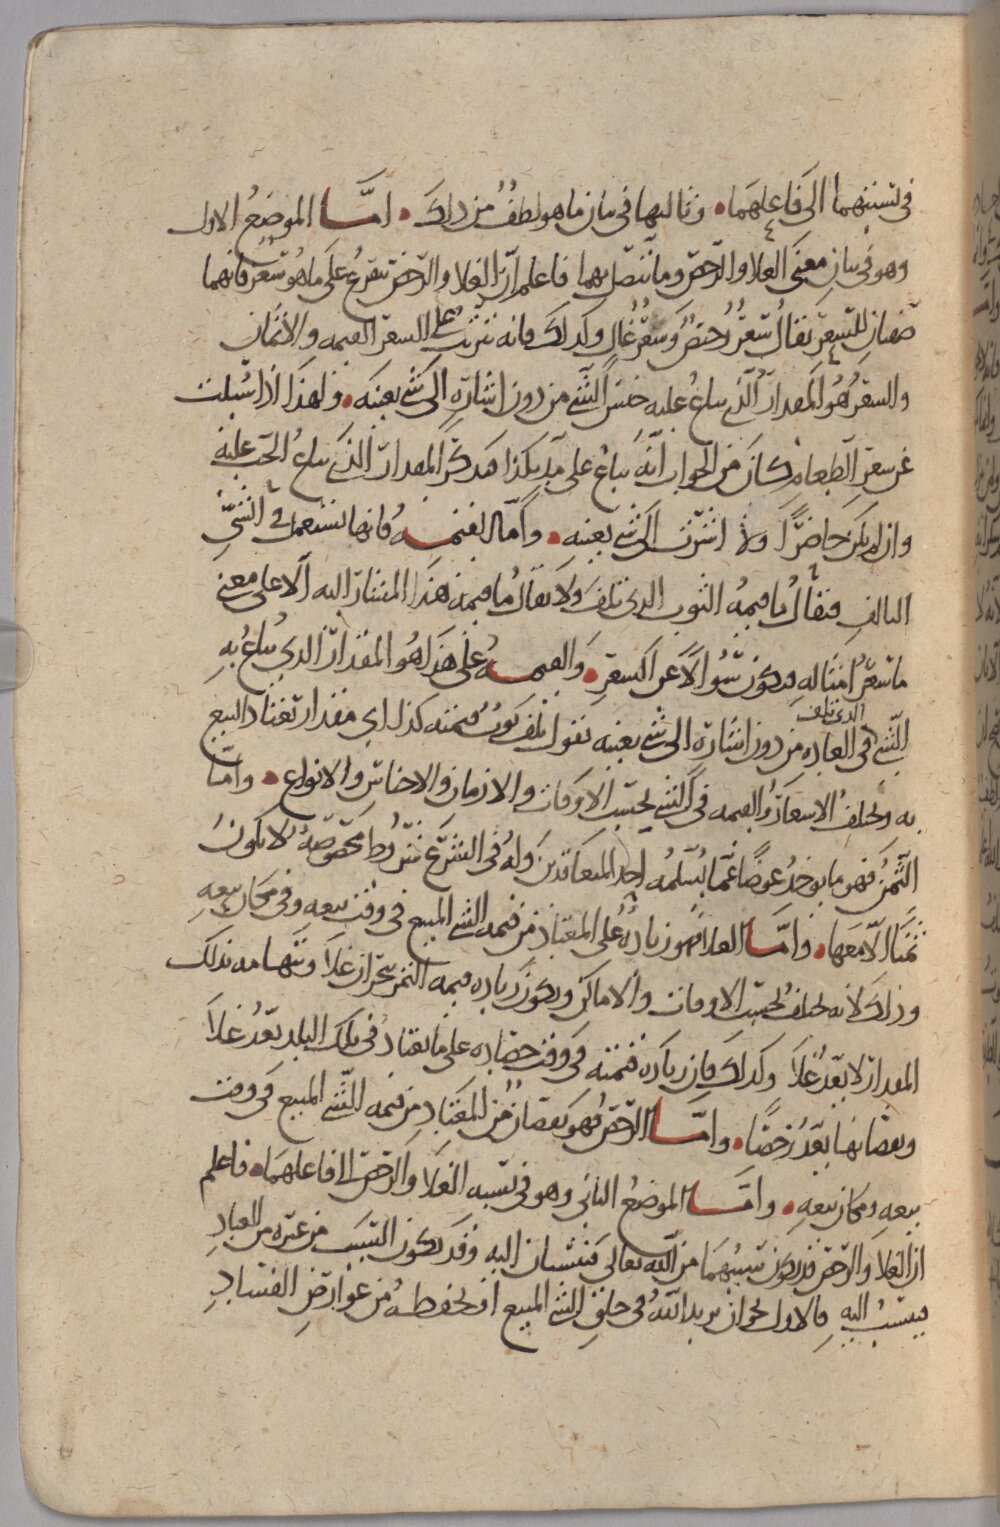 في نسبتهما الى فاعلهما وثالثها في بيان ما هو لطف من ذلك امّا الموضع الاول
وهو في بيان معنى الغلا والرّخص وما يتصل بهما فاعلم انّ الغلا والرّخص يتفرع على ما هو سعر فانهما
صفتان للسعر يقال سعرٌ رُخصٌ وسعرٌ غالٍ وكذلك فانه يترتب على السعر القيمه والاثمان
والسعر هُو المقدار الذي يباع عليه جنس الشي من دون اشاره الى شي بعينه ولهذا اذا سُئلت
عن سعر الطعام كان من الجواب انّه يباع على مد بكذا فذكر المقدار الذي يباع الحب عليه
وان لم يكن حاضرًا ولا اشرت الى شي بعينه وامّا القيمه فانها تستعمل في الشي
التالف فيقالُ ما قيمة الثوب الذي تلف ولا يقالُ ما قيمة هذا المشار اليه الّا على معنى
ما سعر امثاله فيكون سُوالًا عن السعر والقيمه على هذا هُو المقدار الذي يُباع به
الشي الذي تلف في العاده من دون اشارة الى شي بعينه تقول تلف ثوبٌ قيمته كذا اي مقدار تعتاد البيع
به ويختلف الاسعار والقيمه في الشي بحسب الاوقات والازمان والاجناس والانواع وامّا
الثّمن فهو ما يوخذ عوضًا عمّا يُسلّمه احد المتعاقدين وله في الشرع شروط مخصوصة لا يكون
ثمنًا الّا معها وامّا الغلا فهو زيادةٌ على المعتاد من قيمه الشي المبيع في وقت بيعه وفي مكان بيعه
وذلك لانه يختلف بحسب الاوقات والاماكن ويكون زياده قيمه الثمر بنجران غلا وبتهامه بذلك
المقدار لا يعدّ غلا وكذلك فان زياده قيمته في وقت حصاده على ما يعتاد في تلك البلد يعدُ غلًا
ونقصانها يعدُ رُخصًا وامّا الرّخص فهو نقصانٌ من المعتاد من قيمه الشّي المبيع في وقت
بيعه ومكان بيعه وامّا الموضع الثاني وهو في نسبه الغلا والرّخص الى فاعلهما فاعلم
ان الغلا والرّخص قد يكون سببُهما من الله تعالى فينسبان اليه وقد يكون السّبب من غيره من العباد
فينسبُ اليه فالاول نحو ان يزيد اللّهُ في خلق الشي المبيع او يحفظهُ من عوارض الفساد